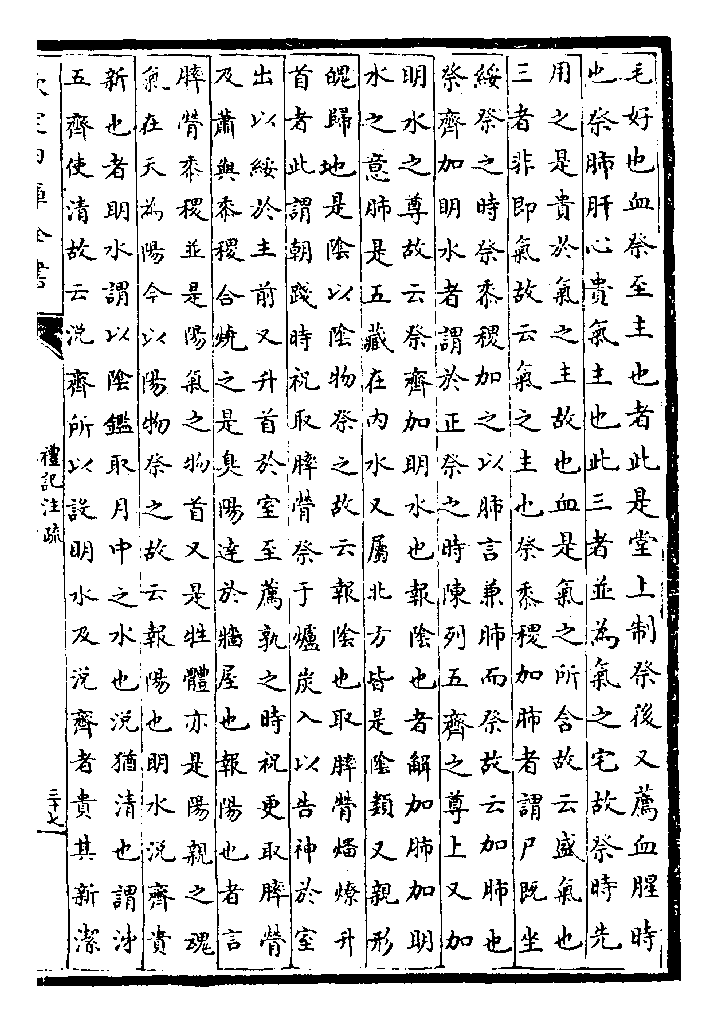 毛好也血祭至主也者此是堂上制祭後又薦血腥時
也祭肺肝心貴氣主也此三者並為氣之宅故祭時先
用之是貴於氣之主故也血是氣之所舍故云盛氣也
三者非即氣故云氣之主也祭黍稷加肺者謂尸既坐
綏祭之時祭黍稷加之以肺言兼肺而祭故云加肺也
祭齊加明水者謂於正祭之時陳列五齊之尊上又加
明水之尊故云祭齊加明水也報陰也者解加肺加明
水之意肺是五藏在内水又屬北方皆是陰類又親形
魄歸地是陰以陰物祭之故云報陰也取膟膋燔燎升
首者此謂朝踐時祝取膟膋祭于爐炭入以告神於室
出以綏於主前又升首於室至薦孰之時祝更取膟膋
及蕭與黍稷合燒之是臭陽達於牆屋也報陽也者言
膟膋黍稷並是陽氣之物首又是牲體亦是陽親之魂
氣在天為陽今以陽物祭之故云報陽也明水涗齊貴
新也者明水謂以陰鑑取月中之水也涗猶清也謂泲
五齊使清故云涗齊所以設明水及涗齊者貴其新潔
欽定四庫全書
禮記注疏